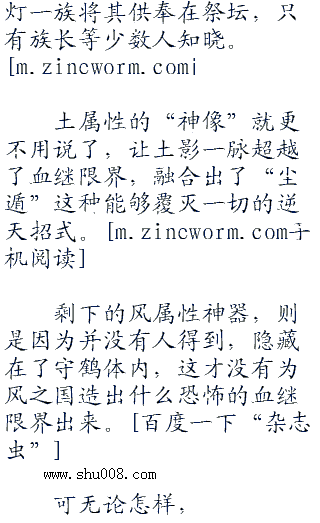 灯一族将其供奉在祭坛，只
有族长等少数人知晓。
[m.zincworm.com]
土属性的“神像”就更
不用说了，让土影一脉超越
了血继限界，融合出了“尘
遁”这种能够覆灭一切的逆
天招式。[m.zincworm.com手
机阅读]
剩下的风属性神器，则
是因为并没有人得到，隐藏
在了守鹤体内，这才没有为
风之国造出什么恐怖的血继
限界出来。[百度一下“杂志
虫”]
www.shu008.com
可无论怎样，